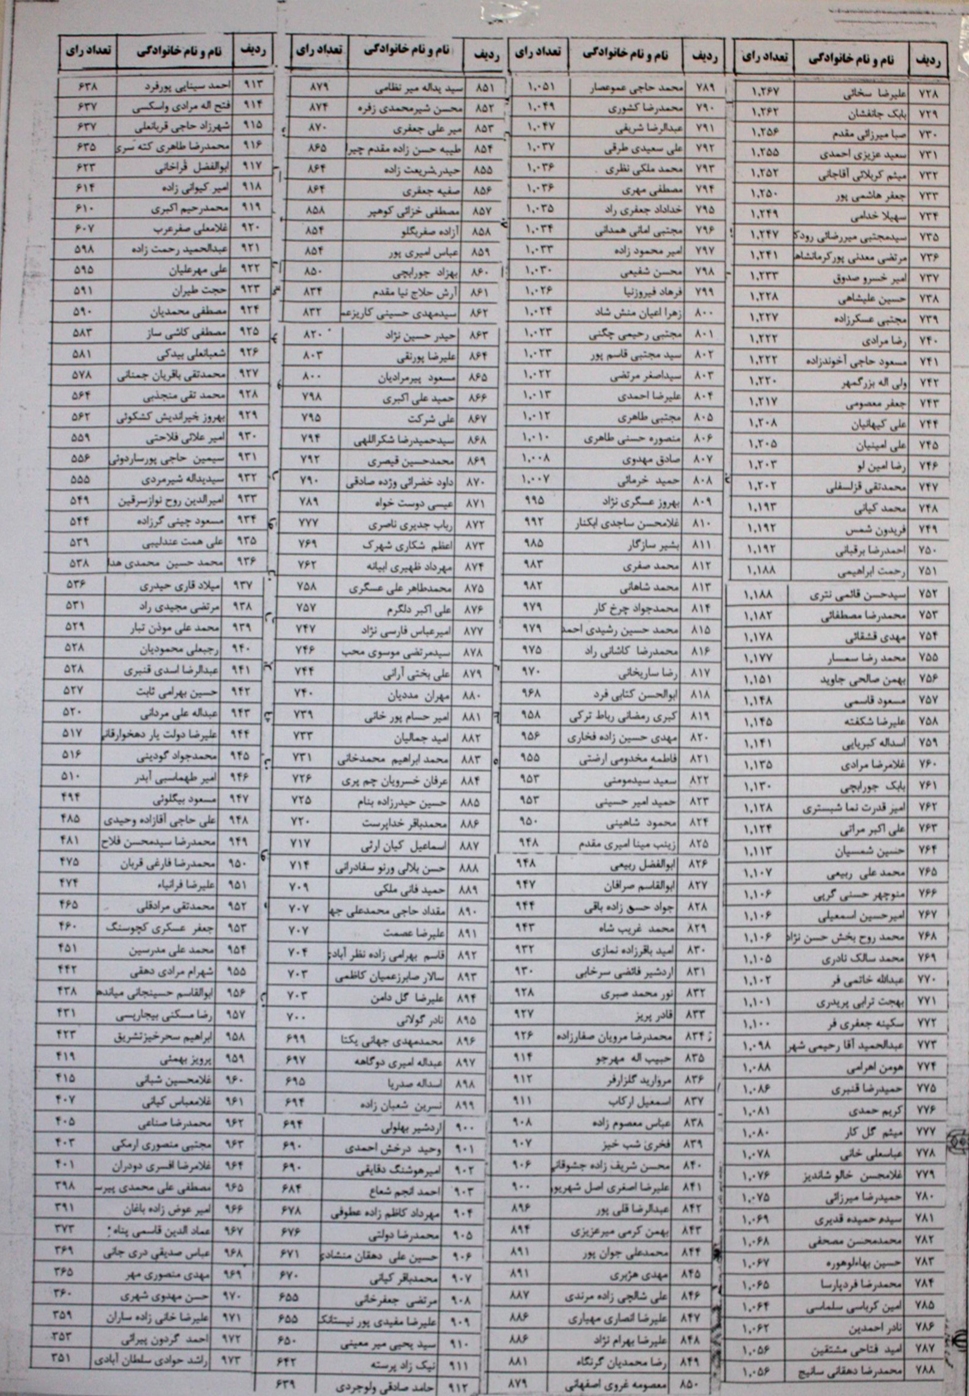 ردیف نام و نام خانوادگی تعداد رای
۷۲۸ علیرضا سخائی ۱,۲۶۷
۷۲۹ بابک جانفشان ۱,۲۶۲
۷۳۰ صبا میرزائی مقدم ۱,۲۵۶
۷۳۱ سعید عزیزی احمدی ۱,۲۵۵
۷۳۲ میثم کربلائی آقاجانی ۱,۲۵۲
۷۳۳ جعفر هاشمی پور ۱,۲۵۰
۷۳۴ سهیلا خدامی ۱,۲۴۹
۷۳۵ سیدمجتبی میررضائی رودک ۱,۲۴۷
۷۳۶ مرتضی معدنی پورکرمانشاه ۱,۲۴۱
۷۳۷ امیر خسرو صدوق ۱,۲۳۳
۷۳۸ حسین علیشاهی ۱,۲۲۸
۷۳۹ مجتبی عسکرزاده ۱,۲۲۷
۷۴۰ رضا مرادی ۱,۲۲۲
۷۴۱ مسعود حاجی آخوندزاده ۱,۲۲۲
۷۴۲ ولی اله بزرگمهر ۱,۲۲۰
۷۴۳ جعفر معصومی ۱,۲۱۷
۷۴۴ علی کیهانیان ۱,۲۰۸
۷۴۵ علی امینیان ۱,۲۰۵
۷۴۶ رضا امین لو ۱,۲۰۳
۷۴۷ محمدتقی قزلسفلی ۱,۲۰۲
۷۴۸ محمد کیانی ۱,۱۹۳
۷۴۹ فریدون شمس ۱,۱۹۲
۷۵۰ احمدرضا برقبانی ۱,۱۹۲
۷۵۱ رحمت ابراهیمی ۱,۱۸۸
۷۵۲ سیدحسن قائمی نتری ۱,۱۸۸
۷۵۳ محمدرضا مصطفائی ۱,۱۸۲
۷۵۴ مهدی قشقائی ۱,۱۷۸
۷۵۵ محمد رضا سمسار ۱,۱۷۷
۷۵۶ بهمن صالحی جاوید ۱,۱۵۱
۷۵۷ مسعود قاسمی ۱,۱۴۸
۷۵۸ علیرضا شکفته ۱,۱۴۵
۷۵۹ اسداله کبریایی ۱,۱۴۱
۷۶۰ غلامرضا مرادی ۱,۱۳۵
۷۶۱ بابک جورابچی ۱,۱۳۰
۷۶۲ امیر قدرت نما شبستری ۱,۱۲۸
۷۶۳ علی اکبر مراتی ۱,۱۲۴
۷۶۴ حسین شمسیان ۱,۱۱۳
۷۶۵ محمد علی ربیعی ۱,۱۰۷
۷۶۶ منوچهر حسنی گریی ۱,۱۰۶
۷۶۷ امیرحسین اسمعیلی ۱,۱۰۶
۷۶۸ محمد روح بخش حسن نژاد ۱,۱۰۶
۷۶۹ محمد سالک نادری ۱,۱۰۵
۷۷۰ عبدالله خاتمی فر ۱,۱۰۲
۷۷۱ بهجت ترابی پریدری ۱,۱۰۱
۷۷۲ سکینه جعفری فر ۱,۱۰۰
۷۷۳ عبدالحمید آقا رحیمی شهر ۱,۰۹۸
۷۷۴ هومن اهرامی ۱,۰۸۸
۷۷۵ حمیدرضا قنبری ۱,۰۸۶
۷۷۶ کریم حمدی ۱,۰۸۱
۷۷۷ میثم گل کار ۱,۰۸۰
۷۷۸ عباسعلی خانی ۱,۰۷۸
۷۷۹ غلامحسن خالو شاندیز ۱,۰۷۶
۷۸۰ حمیدرضا میرزائی ۱,۰۷۵
۷۸۱ سیده حمیده قدیری ۱,۰۶۹
۷۸۲ محمدمحسن مصحفی ۱,۰۶۸
۷۸۳ حسین بهاءلوهوره ۱,۰۶۷
۷۸۴ محمدرضا فردپارسا ۱,۰۶۵
۷۸۵ امین کرباسی سلماسی ۱,۰۶۴
۷۸۶ نادر احمدین ۱,۰۶۲
۷۸۷ امید فتاحی مشتقین ۱,۰۵۶
۷۸۸ محمدرضا دهقانی سانیج ۱,۰۵۶
ردیف نام و نام خانوادگی تعداد رای
۷۸۹ محمد حاجی عموعصار ۱,۰۵۱
۷۹۰ محمدرضا کشوری ۱,۰۴۹
۷۹۱ عبدالرضا شریفی ۱,۰۴۷
۷۹۲ علی سعیدی طرقی ۱,۰۳۷
۷۹۳ محمد ملکی نظری ۱,۰۳۶
۷۹۴ مصطفی مهری ۱,۰۳۶
۷۹۵ خداداد جعفری راد ۱,۰۳۵
۷۹۶ مجتبی امانی همدانی ۱,۰۳۴
۷۹۷ امیر محمود زاده ۱,۰۳۳
۷۹۸ محسن شفیعی ۱,۰۳۰
۷۹۹ فرهاد فیروزنیا ۱,۰۲۶
۸۰۰ زهرا اعیان منش شاد ۱,۰۲۴
۸۰۱ مجتبی رحیمی چگنی ۱,۰۲۳
۸۰۲ سید مجتبی قاسم پور ۱,۰۲۳
۸۰۳ سیداصغر مرتضی ۱,۰۲۲
۸۰۴ علیرضا احمدی ۱,۰۱۳
۸۰۵ مجتبی طاهری ۱,۰۱۲
۸۰۶ منصوره حسنی طاهری ۱,۰۱۰
۸۰۷ صادق مهدوی ۱,۰۰۸
۸۰۸ حمید خرمائی ۱,۰۰۷
۸۰۹ بهروز عسگری نژاد ۹۹۵
۸۱۰ غلامحسن ساجدی ابکنار ۹۹۲
۸۱۱ بشیر سازگار ۹۸۵
۸۱۲ محمد صفری ۹۸۳
۸۱۳ محمد شاهانی ۹۸۲
۸۱۴ محمدجواد چرخ کار ۹۷۹
۸۱۵ محمد حسین رشیدی احمد ۹۷۹
۸۱۶ محمدرضا کاشانی راد ۹۷۵
۸۱۷ رضا ساریخانی ۹۷۰
۸۱۸ ابوالحسن کتابی فرد ۹۶۸
۸۱۹ کبری رمضانی رباط ترکی ۹۵۸
۸۲۰ مهدی حسین زاده فخاری ۹۵۶
۸۲۱ فاطمه مخدومی ارضتی ۹۵۵
۸۲۲ سعید سیدمومنی ۹۵۳
۸۲۳ حمید امیر حسینی ۹۵۳
۸۲۴ محمود شاهینی ۹۵۰
۸۲۵ زینب مینا امیری مقدم ۹۴۸
۸۲۶ ابوالفضل ربیعی ۹۴۸
۸۲۷ ابوالقاسم صرافان ۹۴۷
۸۲۸ جواد حسن زاده باقی ۹۴۴
۸۲۹ محمد غریب شاه ۹۴۳
۸۳۰ امید باقرزاده نمازی ۹۳۲
۸۳۱ اردشیر فائضی سرخابی ۹۳۰
۸۳۲ نور محمد صبری ۹۲۸
۸۳۳ قادر پریز ۹۲۷
۸۳۴ محمدرضا مرویان صفارزاده ۹۲۶
۸۳۵ حبیب اله مهرجو ۹۱۴
۸۳۶ مروارید گلزارفر ۹۱۲
۸۳۷ اسمعیل ارکاب ۹۱۱
۸۳۸ عباس معصوم زاده ۹۰۸
۸۳۹ فخری شب خیز ۹۰۷
۸۴۰ محسن شریف زاده جشوقانی ۹۰۶
۸۴۱ علیرضا اصغری اصل شهریور ۹۰۰
۸۴۲ عبدالرضا قلی پور ۸۹۶
۸۴۳ بهمن کرمی میرعزیزی ۸۹۴
۸۴۴ محمدعلی جوان پور ۸۹۱
۸۴۵ مهدی هژبری ۸۹۱
۸۴۶ علی شالچی زاده مرندی ۸۸۷
۸۴۷ علیرضا انصاری مهیاری ۸۸۶
۸۴۸ علیرضا بهرام نژاد ۸۸۶
۸۴۹ رضا محمدیان گرنگاه ۸۸۱
۸۵۰ معصومه غروی اصفهانی ۸۷۹
ردیف نام و نام خانوادگی تعداد رای
۸۵۱ سید یداله میر نظامی ۸۷۹
۸۵۲ محسن شیرمحمدی زفره ۸۷۴
۸۵۳ میر علی جعفری ۸۷۰
۸۵۴ طیبه حسن زاده مقدم چیرا ۸۶۵
۸۵۵ حیدر شریعت زاده ۸۶۴
۸۵۶ صفیه جعفری ۸۶۴
۸۵۷ مصطفی خزائی کوهپر ۸۵۸
۸۵۸ آزاده صفریگلو ۸۵۴
۸۵۹ عباس امیری پور ۸۵۴
۸۶۰ بهزاد جورابچی ۸۵۰
۸۶۱ آرش حلاج نیا مقدم ۸۳۴
۸۶۲ سیدمهدی حسینی کاریزعم ۸۳۲
۸۶۳ حیدر حسین نژاد ۸۲۰
۸۶۴ علیرضا پورتقی ۸۰۳
۸۶۵ مسعود پیرمرادیان ۸۰۰
۸۶۶ حمید علی اکبری ۷۹۸
۸۶۷ علی شرکت ۷۹۵
۸۶۸ سیدحمیدرضا شکراللهی ۷۹۴
۸۶۹ محمدحسین قیصری ۷۹۲
۸۷۰ داود خضرائی وژده صادقی ۷۹۰
۸۷۱ عیسی دوست خواه ۷۸۹
۸۷۲ رباب جدیری ناصری ۷۷۷
۸۷۳ اعظم شکاری شهرک ۷۶۹
۸۷۴ مهرداد ظهیری ابیانه ۷۶۲
۸۷۵ محمدطاهر علی عسگری ۷۵۸
۸۷۶ علی اکبر دلگرم ۷۵۷
۸۷۷ امیرعباس فارسی نژاد ۷۴۷
۸۷۸ سیدمرتضی موسوی محب ۷۴۶
۸۷۹ علی بختی آرانی ۷۴۴
۸۸۰ مهران مددیان ۷۴۰
۸۸۱ امیر حسام پور خانی ۷۳۹
۸۸۲ امید جمالیان ۷۳۳
۸۸۳ محمد ابراهیم محمدخانی ۷۳۱
۸۸۴ عرفان خسرویان چم پری ۷۲۶
۸۸۵ حسین حیدرزاده بنام ۷۲۵
۸۸۶ محمدباقر خداپرست ۷۲۰
۸۸۷ اسماعیل کیان ارثی ۷۱۷
۸۸۸ حسن بلالی ورنو سفادرانی ۷۱۴
۸۸۹ حمید فانی ملکی ۷۰۹
۸۹۰ مقداد حاجی محمدعلی جه ۷۰۷
۸۹۱ علیرضا عصمت ۷۰۷
۸۹۲ قاسم بهرامی زاده نظر آبادی ۷۰۴
۸۹۳ سالار صابرزعمیان کاظمی ۷۰۳
۸۹۴ علیرضا گل دامن ۷۰۳
۸۹۵ نادر گولانی ۷۰۰
۸۹۶ محمدمهدی جهانی یکتا ۶۹۹
۸۹۷ عبداله امیری دوگاهه ۶۹۷
۸۹۸ اسداله صدریا ۶۹۵
۸۹۹ نسرین شعبان زاده ۶۹۴
۹۰۰ اردشیر بهلولی ۶۹۴
۹۰۱ وحید درخش احمدی ۶۹۰
۹۰۲ امیرهوشنگ دقایقی ۶۹۰
۹۰۳ احمد انجم شعاع ۶۸۴
۹۰۴ مهرداد کاظم زاده عطوفی ۶۷۸
۹۰۵ محمدرضا دولتی ۶۷۶
۹۰۶ حسین علی دهقان منشادی ۶۷۱
۹۰۷ محمدباقر کیانی ۶۷۰
۹۰۸ مرتضی جعفرخانی ۶۵۵
۹۰۹ علیرضا مقیدی پور نیستانک ۶۵۵
۹۱۰ سید یحیی میر معینی ۶۵۰
۹۱۱ نیک زاد پرسته ۶۴۲
۹۱۲ حامد صادقی ولوجردی ۶۳۹
ردیف نام و نام خانوادگی تعداد رای
۹۱۳ احمد سینایی پورفرد ۶۳۸
۹۱۴ فتح اله مرادی واسکسی ۶۳۷
۹۱۵ شهرزاد حاجی قربانعلی ۶۳۷
۹۱۶ محمدرضا طاهری کته سری ۶۳۵
۹۱۷ ابوالفضل قراخانی ۶۲۳
۹۱۸ امیر کیوانی زاده ۶۱۴
۹۱۹ محمدرحیم اکبری ۶۱۰
۹۲۰ غلامعلی صفرعرب ۶۰۷
۹۲۱ عبدالحمید رحمت زاده ۵۹۸
۹۲۲ علی مهرعلیان ۵۹۵
۹۲۳ حجت طیران ۵۹۱
۹۲۴ مصطفی محمدیان ۵۹۰
۹۲۵ مصطفی کاشی ساز ۵۸۳
۹۲۶ شعبانعلی بیدکی ۵۸۱
۹۲۷ محمدتقی باقریان جمنانی ۵۷۸
۹۲۸ محمد تقی متجذبی ۵۶۴
۹۲۹ بهروز خیراندیش کشکوئی ۵۶۲
۹۳۰ امیر علائی فلاحتی ۵۵۹
۹۳۱ سیمین حاجی پورساردوئی ۵۵۶
۹۳۲ سیدیداله شیرمردی ۵۵۵
۹۳۳ امیرالدین روح نوازسرقین ۵۴۹
۹۳۴ مسعود چینی گرزاده ۵۴۴
۹۳۵ علی همت عندلیبی ۵۳۹
۹۳۶ محمد حسین محمدی هدا ۵۳۸
۹۳۷ میلاد قاری حیدری ۵۳۶
۹۳۸ مرتضی مجیدی راد ۵۳۱
۹۳۹ محمد علی موذن تبار ۵۲۹
۹۴۰ رجبعلی محمودیان ۵۲۸
۹۴۱ عبدالرضا اسدی قنبری ۵۲۸
۹۴۲ حسین بهرامی ثابت ۵۲۷
۹۴۳ عبداله علی مردانی ۵۲۰
۹۴۴ علیرضا دولت یار دهخوارقانی ۵۱۷
۹۴۵ محمدجواد گودینی ۵۱۶
۹۴۶ امیر طهماسبی آبدر ۵۱۰
۹۴۷ مسعود بیگلوئی ۴۹۴
۹۴۸ علی حاجی آقازاده وحیدی ۴۸۵
۹۴۹ محمدرضا سیدمحسن فلاح ۴۸۱
۹۵۰ محمدرضا فارغی قربان ۴۷۵
۹۵۱ علیرضا فرانیاء ۴۷۴
۹۵۲ محمدتقی مرادقلی ۴۶۵
۹۵۳ جعفر عسکری کچوسنگ ۴۶۰
۹۵۴ محمد علی مدرسین ۴۵۱
۹۵۵ شهرام مرادی دهقی ۴۴۲
۹۵۶ ابوالقاسم حسینجانی میانده ۴۳۸
۹۵۷ رضا مسکنی بیجارپسی ۴۳۱
۹۵۸ ابراهیم سحرخیزتشریق ۴۲۳
۹۵۹ پرویز بهمئی ۴۱۹
۹۶۰ غلامحسین شبانی ۴۱۵
۹۶۱ غلامعباس کیانی ۴۰۷
۹۶۲ محمدرضا صناعی ۴۰۵
۹۶۳ مجتبی منصوری ارمکی ۴۰۳
۹۶۴ غلامرضا افسری دودران ۴۰۱
۹۶۵ مصطفی علی محمدی پیرس ۳۹۸
۹۶۶ امیر عوض زاده باغان ۳۹۱
۹۶۷ عماد الدین قاسمی پناه ۳۷۳
۹۶۸ عباس صدیقی دری جانی ۳۶۹
۹۶۹ مهدی منصوری مهر ۳۶۵
۹۷۰ حسن مهدوی شهری ۳۶۰
۹۷۱ علیرضا خانی زاده ساران ۳۵۹
۹۷۲ احمد گردون پیرائی ۳۵۳
۹۷۳ راشد جوادی سلطان آبادی ۳۵۱